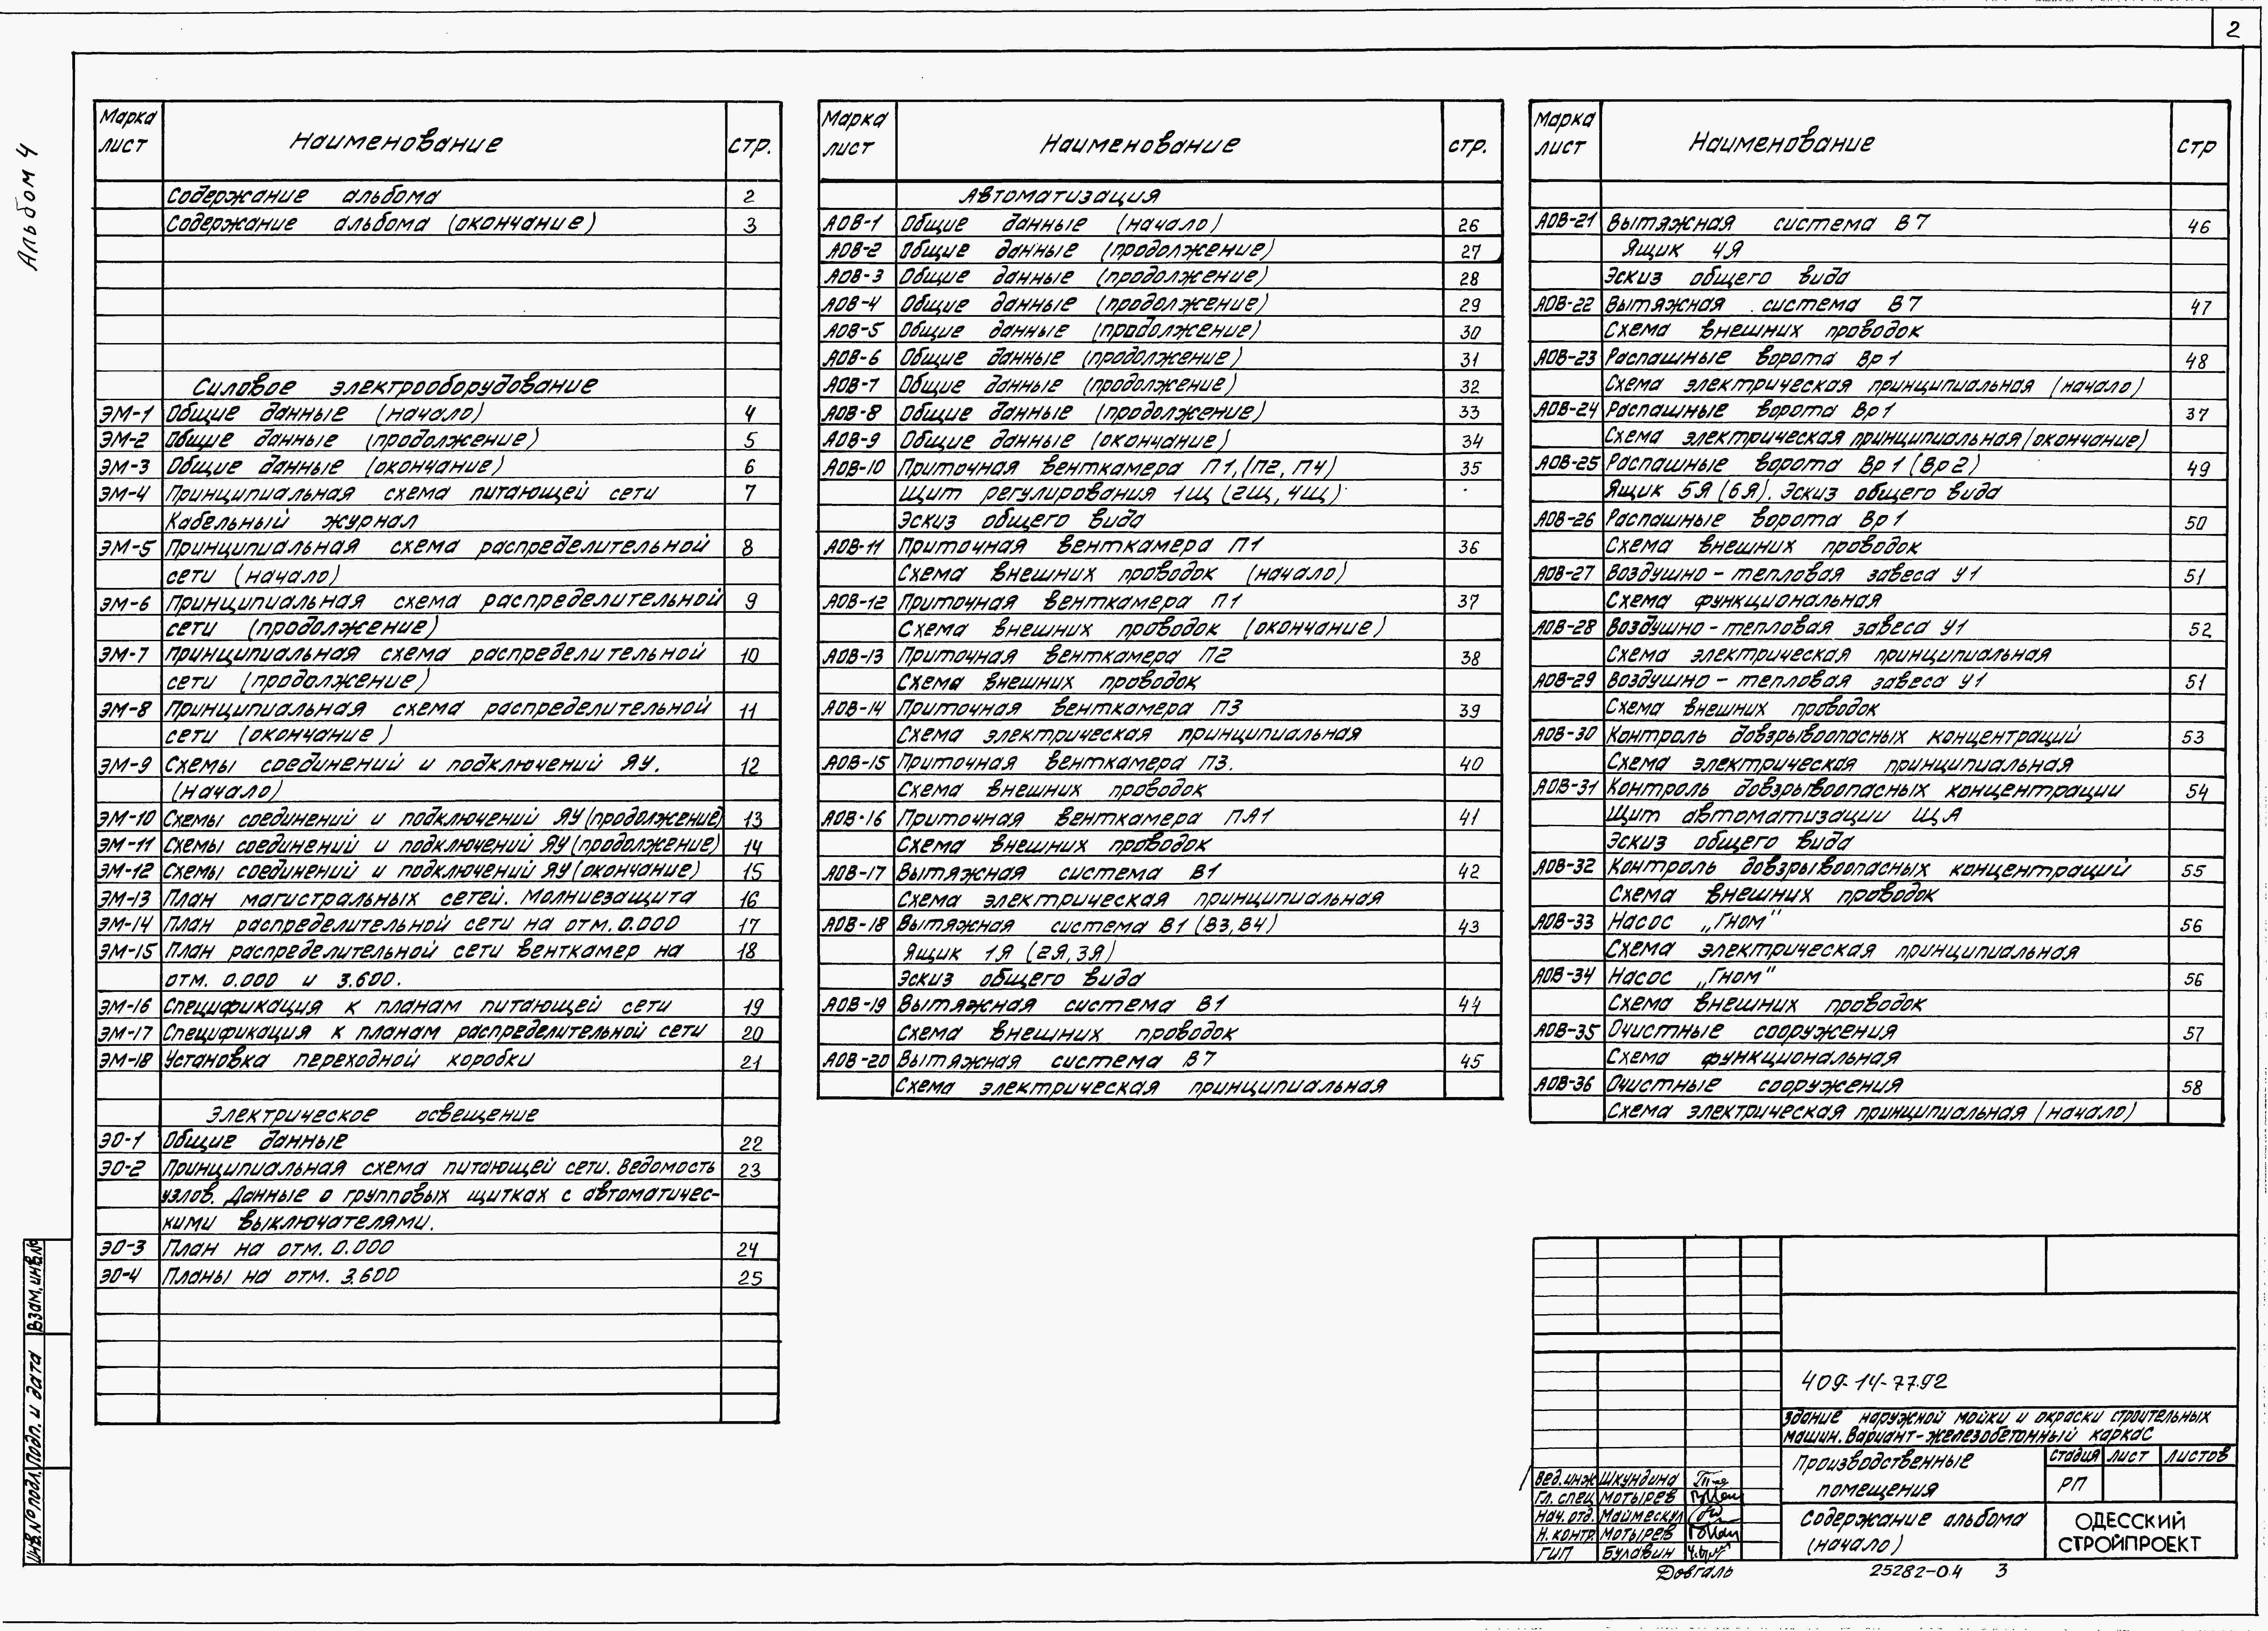 2
Альбом 4
Марка лист Наименование стр.
Содержание альбома 2
Содержание альбома (окончание) 3
Силовое электрооборудование
ЭМ-1 Общие данные (начало) 4
ЭМ-2 Общие данные (продолжение) 5
ЭМ-3 Общие данные (окончание) 6
ЭМ-4 Принципиальная схема питающей сети 7
Кабельный журнал
ЭМ-5 Принципиальная схема распределительной 8
сети (начало)
ЭМ-6 Принципиальная схема распределительной 9
сети (продолжение)
ЭМ-7 Принципиальная схема распределительной 10
сети (продолжение)
ЭМ-8 Принципиальная схема распределительной 11
сети (окончание)
ЭМ-9 Схемы соединений и подключений ЯУ. 12
(начало)
ЭМ-10 Схемы соединений и подключений ЯУ (продолжение) 13
ЭМ-11 Схемы соединений и подключений ЯУ (продолжение) 14
ЭМ-12 Схемы соединений и подключений ЯУ (окончание) 15
ЭМ-13 План магистральных сетей. Молниезащита 16
ЭМ-14 План распределительной сети на отм. 0.000 17
ЭМ-15 План распределительной сети венткамер на 18
отм. 0.000 и 3.600.
ЭМ-16 Спецификация к планам питающей сети 19
ЭМ-17 Спецификация к планам распределительной сети 20
ЭМ-18 Установка переходной коробки 21
Электрическое освещение
ЭО-1 Общие данные 22
ЭО-2 Принципиальная схема питающей сети. Ведомость 23
узлов. Данные о групповых щитках с автоматичес-
кими выключателями.
ЭО-3 План на отм. 0.000 24
ЭО-4 Планы на отм. 3.600 25
Марка лист Наименование стр.
Автоматизация
АОВ-1 Общие данные (начало) 26
АОВ-2 Общие данные (продолжение) 27
АОВ-3 Общие данные (продолжение) 28
АОВ-4 Общие данные (продолжение) 29
АОВ-5 Общие данные (продолжение) 30
АОВ-6 Общие данные (продолжение) 31
АОВ-7 Общие данные (продолжение) 32
АОВ-8 Общие данные (продолжение) 33
АОВ-9 Общие данные (окончание) 34
АОВ-10 Приточная венткамера П1, (П2, П4) 35
Щит регулирования 1Щ (2Щ, 4Щ)
Эскиз общего вида
АОВ-11 Приточная венткамера П1 36
Схема внешних проводок (начало)
АОВ-12 Приточная венткамера П1 37
Схема внешних проводок (окончание)
АОВ-13 Приточная венткамера П2 38
Схема внешних проводок
АОВ-14 Приточная венткамера П3 39
Схема электрическая принципиальная
АОВ-15 Приточная венткамера П3. 40
Схема внешних проводок
АОВ-16 Приточная венткамера ПА1 41
Схема внешних проводок
АОВ-17 Вытяжная система В1 42
Схема электрическая принципиальная
АОВ-18 Вытяжная система В1 (В3, В4) 43
Ящик 1Я (2Я, 3Я)
Эскиз общего вида
АОВ-19 Вытяжная система В1 44
Схема внешних проводок
АОВ-20 Вытяжная система В7 45
Схема электрическая принципиальная
Марка лист Наименование стр
АОВ-21 Вытяжная система В7 46
Ящик 4Я
Эскиз общего вида
АОВ-22 Вытяжная система В7 47
Схема внешних проводок
АОВ-23 Распашные ворота Вр1 48
Схема электрическая принципиальная (начало)
АОВ-24 Распашные ворота Вр1 37
Схема электрическая принципиальная (окончание)
АОВ-25 Распашные ворота Вр1 (Вр2) 49
Ящик 5Я (6Я). Эскиз общего вида
АОВ-26 Распашные ворота Вр1 50
Схема внешних проводок
АОВ-27 Воздушно-тепловая завеса У1 51
Схема функциональная
АОВ-28 Воздушно-тепловая завеса У1 52
Схема электрическая принципиальная
АОВ-29 Воздушно-тепловая завеса У1 51
Схема внешних проводок
АОВ-30 Контроль довзрывоопасных концентраций 53
Схема электрическая принципиальная
АОВ-31 Контроль довзрывоопасных концентрации 54
Щит автоматизации ЩА
Эскиз общего вида
АОВ-32 Контроль довзрывоопасных концентраций 55
Схема внешних проводок
АОВ-33 Насос „Гном" 56
Схема электрическая принципиальная
АОВ-34 Насос „Гном" 56
Схема внешних проводок
АОВ-35 Очистные сооружения 57
Схема функциональная
АОВ-36 Очистные сооружения 58
Схема электрическая принципиальная (начало)
409-14-77.92
Здание наружной мойки и окраски строительных
машин. Вариант-железобетонный каркас
Производственные помещения
стадия лист листов
РП
Содержание альбома (начало)
ОДЕССКИЙ СТРОЙПРОЕКТ
Вед.инж Шкундина
Гл. спец Мотырев
Нач. отд. Маймескул
Н. контр. Мотырев
ГИП Булавин
Довгаль
25282-04 3
Взам. инв.№
Подп. и дата
Инв.№ подл.